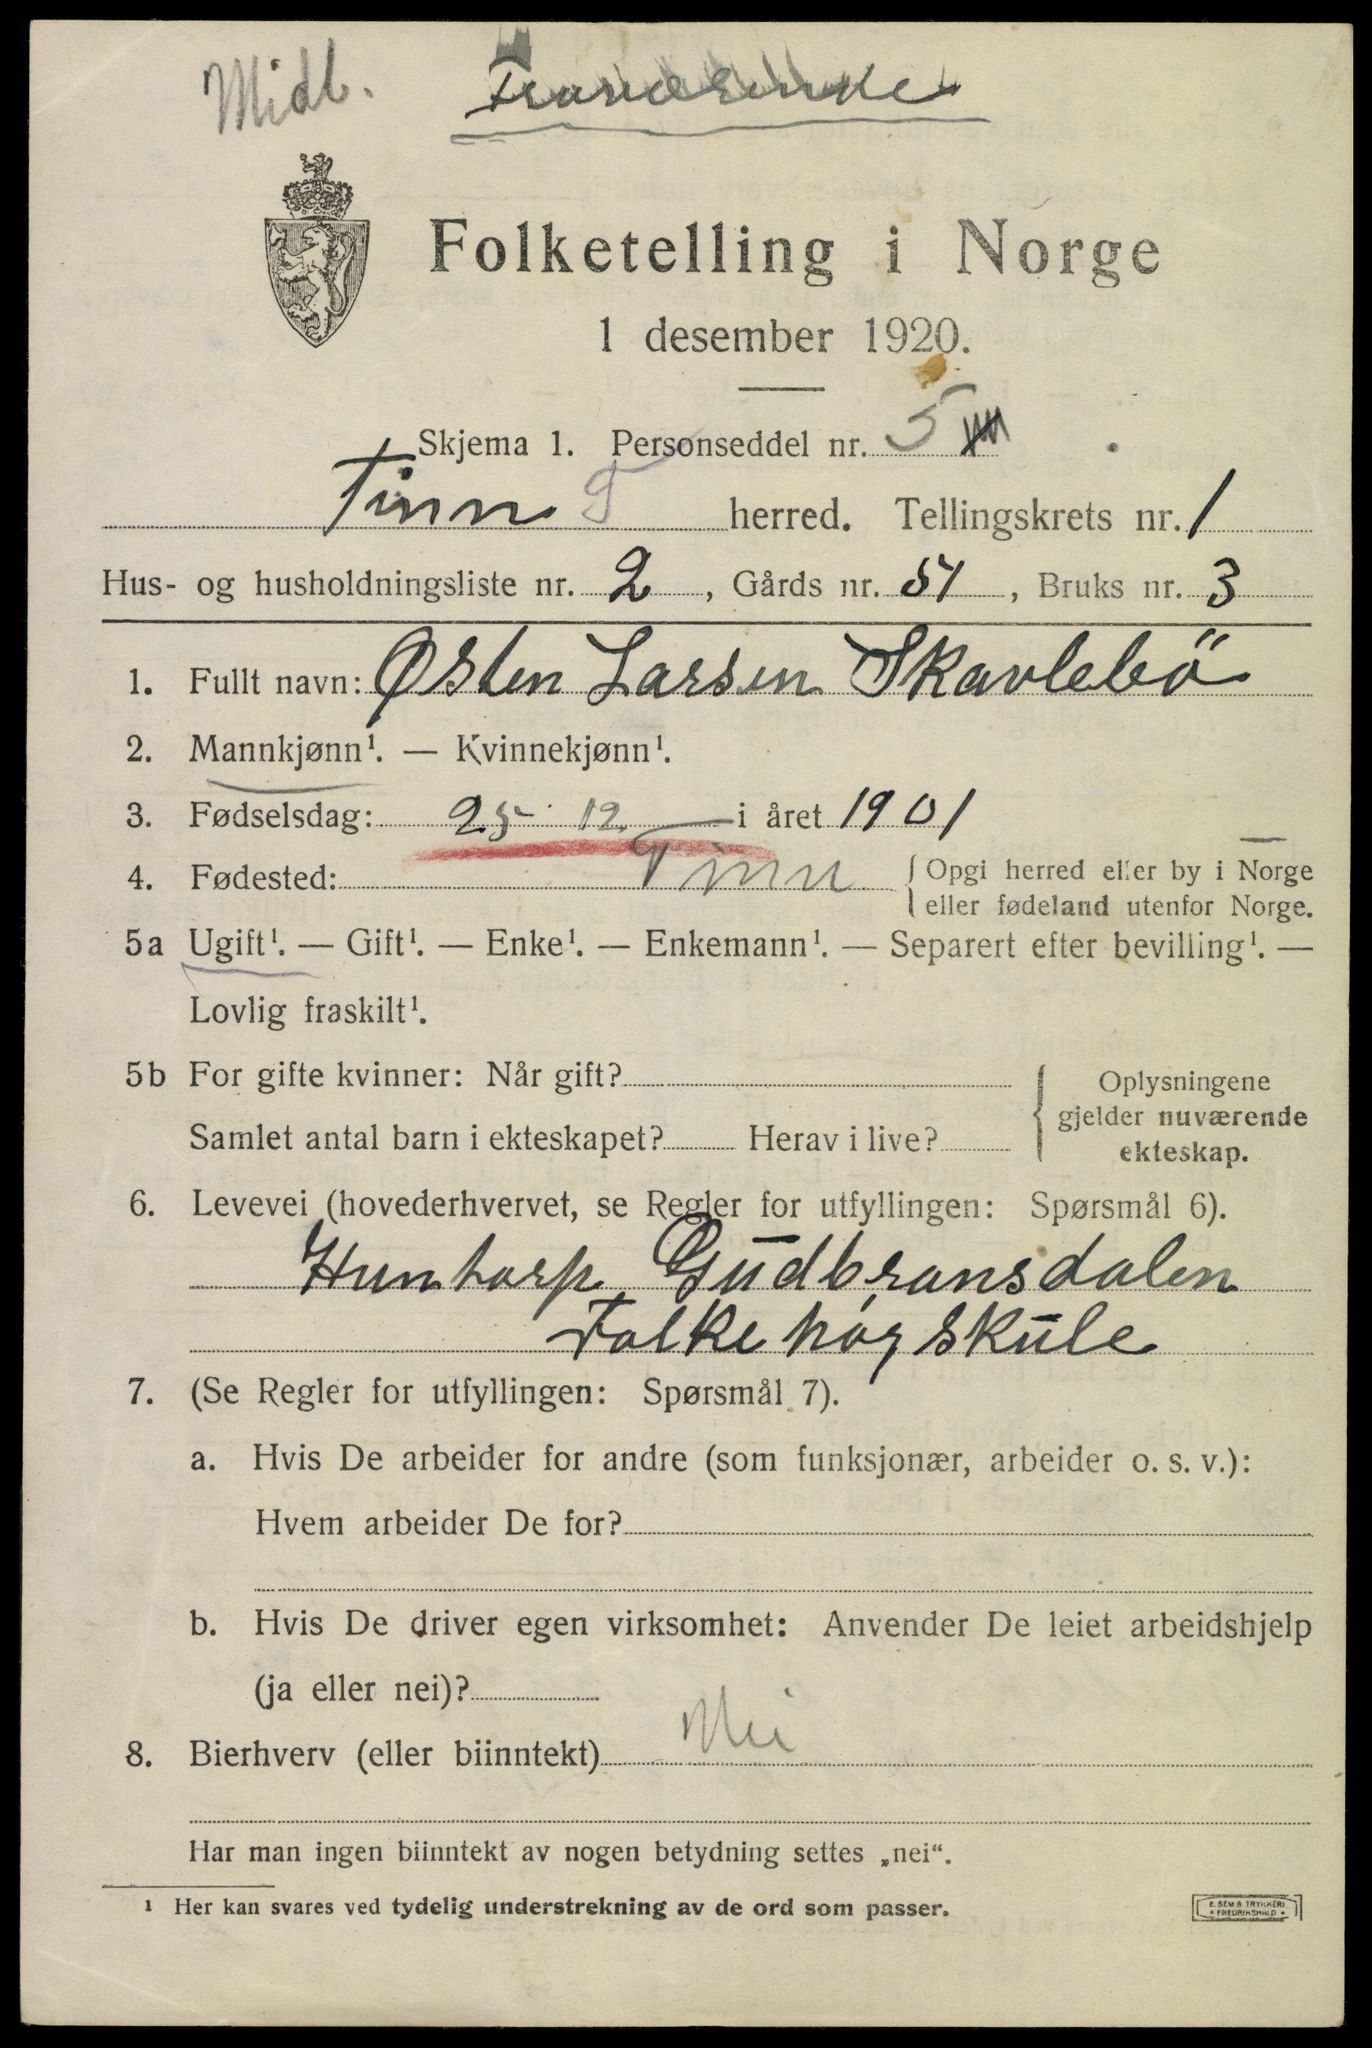 Midl. Fraværende
Folketelling i Norge
1 desember 1920.
Skjema 1. Personseddel nr. 5
Tinn T herred. Tellingskrets nr. 1
Hus- og husholdningsliste nr. 2, Gårds nr. 51, Bruks nr. 3
1. Fullt navn: Østen Larsen Skavlebö
2. Mannkjønn¹. — Kvinnekjønn¹.
3. Fødselsdag: 25 12 i året 1901
4. Fødested: Tinn { Opgi herred eller by i Norge
eller fødeland utenfor Norge.
5a Ugift¹. — Gift¹. — Enke¹. — Enkemann¹. — Separert efter bevilling¹. —
Lovlig fraskilt¹.
5b For gifte kvinner: Når gift?
Samlet antal barn i ekteskapet? Herav i live?
Oplysningene
gjelder nuværende
ekteskap.
6. Levevei (hovederhvervet, se Regler for utfyllingen: Spørsmål 6).
Huntorp Gudbransdalen
Folkehøgskule
7. (Se Regler for utfyllingen: Spørsmål 7).
a. Hvis De arbeider for andre (som funksjonær, arbeider o. s. v.):
Hvem arbeider De for?
b. Hvis De driver egen virksomhet: Anvender De leiet arbeidshjelp
(ja eller nei)?
8. Bierhverv (eller biinntekt) Nei
Har man ingen biinntekt av nogen betydning settes „nei“.
¹ Her kan svares ved tydelig understrekning av de ord som passer.
E. SEM & TRYKKERI
FREDRIKSHALD